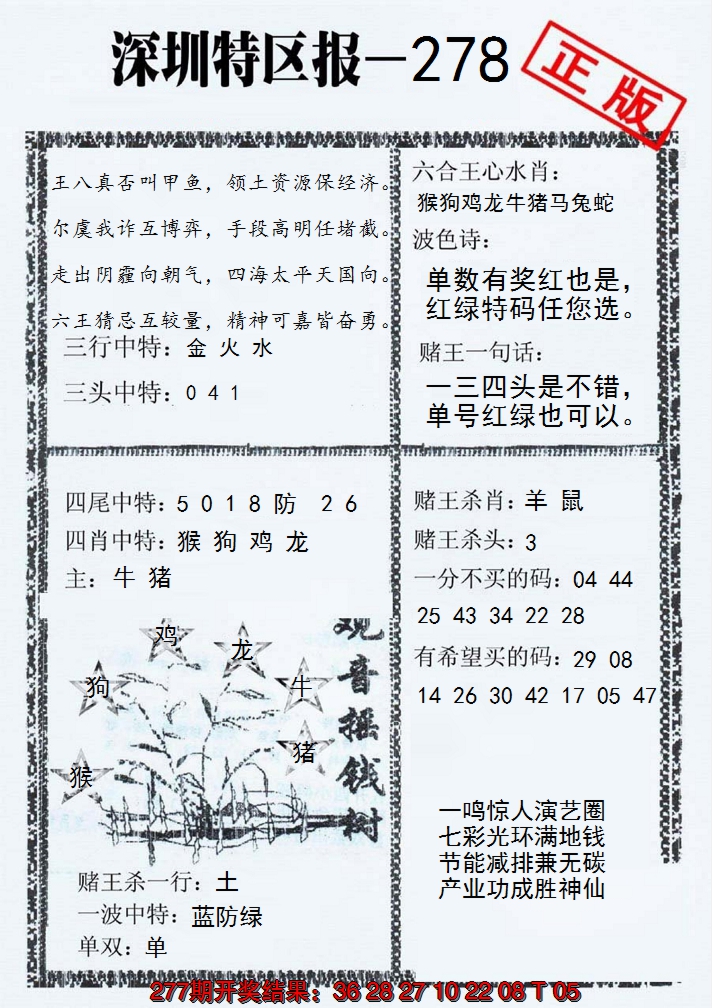 深圳特区报－278
正版
王八真否叫甲鱼，领土资源保经济。
尔虞我诈互博弈，手段高明任堵截。
走出阴霾向朝气，四海太平天国向。
六王猜忌互较量，精神可嘉皆奋勇。
三行中特：金 火 水
三头中特：0 4 1
六合王心水肖：
猴狗鸡龙牛猪马兔蛇
波色诗：
单数有奖红也是，
红绿特码任您选。
赌王一句话：
一三四头是不错，
单号红绿也可以。
四尾中特：5 0 1 8 防 2 6
四肖中特：猴 狗 鸡 龙
主：牛 猪
赌王杀肖：羊 鼠
赌王杀头：3
一分不买的码：04 44
25 43 34 22 28
有希望买的码：29 08
14 26 30 42 17 05 47
观音摇钱树
鸡
龙
狗
牛
猪
猴
一鸣惊人演艺圈
七彩光环满地钱
节能减排兼无碳
产业功成胜神仙
赌王杀一行：土
一波中特：蓝防绿
单双：单
277期开奖结果：36 28 27 10 22 08 T 05